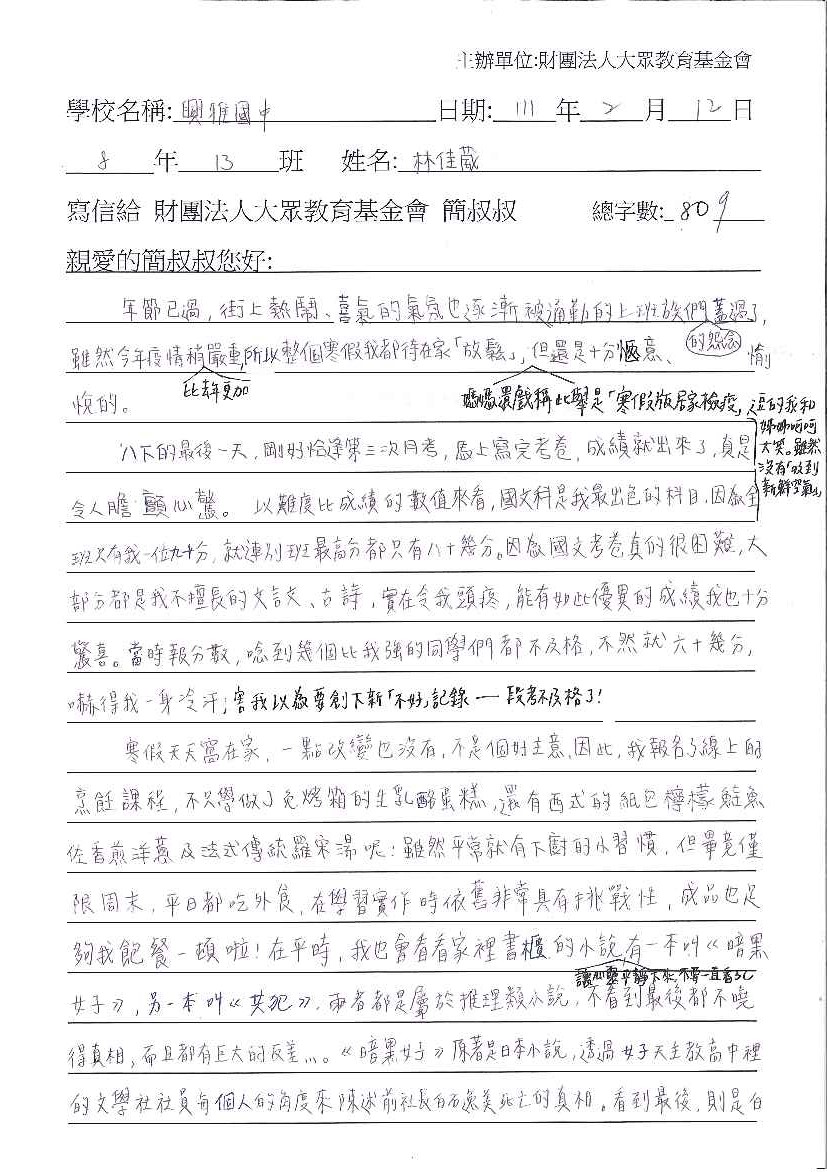 主辦單位:財團法人大眾教育基金會
學校名稱: 興雅國中 日期: 111 年 2 月 12 日
8 年 13 班 姓名: 林佳葳
寫信給 財團法人大眾教育基金會 簡叔叔 總字數: 809
親愛的簡叔叔您好:
年節已過,街上熱鬧、喜氣的氣氛也逐漸被通勤的上班族們蓋過了,
雖然今年疫情稍嚴重,所以整個寒假我都待在家「放鬆」,但還是十分愜意、愉
的怨念
悅的。
比去年更加
媽媽還戲稱此舉是「寒假版居家檢疫」,逗的我和
姊姊呵呵
大笑。雖然
沒有「收到
新鮮空氣」
八下的最後一天,剛好恰逢第三次月考,馬上寫完考卷,成績就出來了,真是
令人膽顫心驚。以難度比成績的數值來看,國文科是我最出色的科目,因為全
班只有我一位九十分,就連別班最高分都只有八十幾分。因為國文考卷真的很困難,大
部分都是我不擅長的文言文、古詩,實在令我頭疼,能有如此優異的成績我也十分
驚喜。當時報分數,唸到幾個比我強的同學們都不及格,不然就六十幾分,
嚇得我一身冷汗;害我以為要創下新「不好」記錄——段考不及格了!
寒假天天窩在家,一點改變也沒有,不是個好主意,因此,我報名了線上的
烹飪課程,不只學做了免烤箱的生乳酪蛋糕,還有西式的紙包檸檬鯰魚
佐香煎洋蔥及法式傳統羅宋湯呢!雖然平常就有下廚的小習慣,但畢竟僅
限周末,平日都吃外食,在學習實作時依舊非常具有挑戰性,成品也足
夠我飽餐一頓啦!在平時,我也會看看家裡書櫃的小說,有一本叫《暗黑
讓心靈平靜下來,不要一直看3C
女子》,另一本叫《共犯》,兩者都是屬於推理類小說,不看到最後都不曉
得真相,而且都有巨大的反差…。《暗黑女子》原著是日本小說,透過女子天主教高中裡
的文學社社員每個人的角度來陳述前社長白石逸美死亡的真相。看到最後,則是白